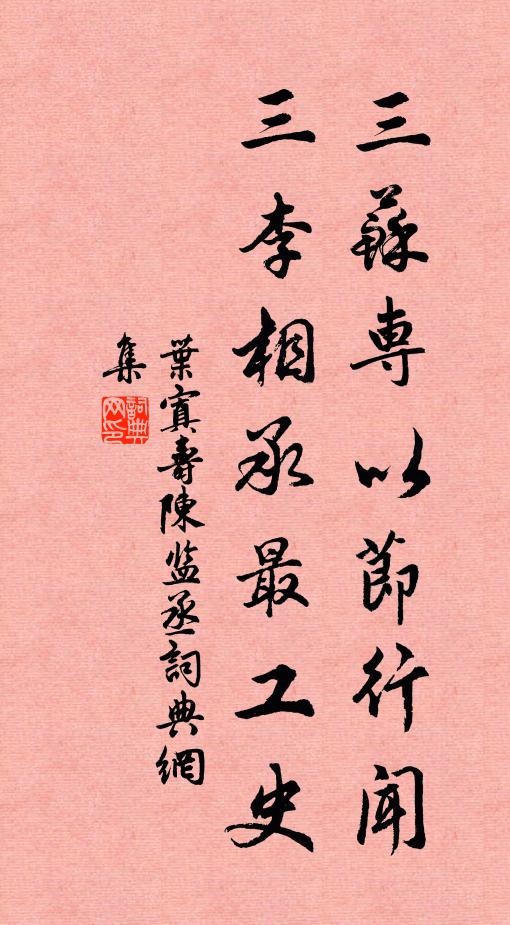 三蘇専以節行聞
三李相承最工史
葉寘壽陳监丞詞典網
集
詞典
网印